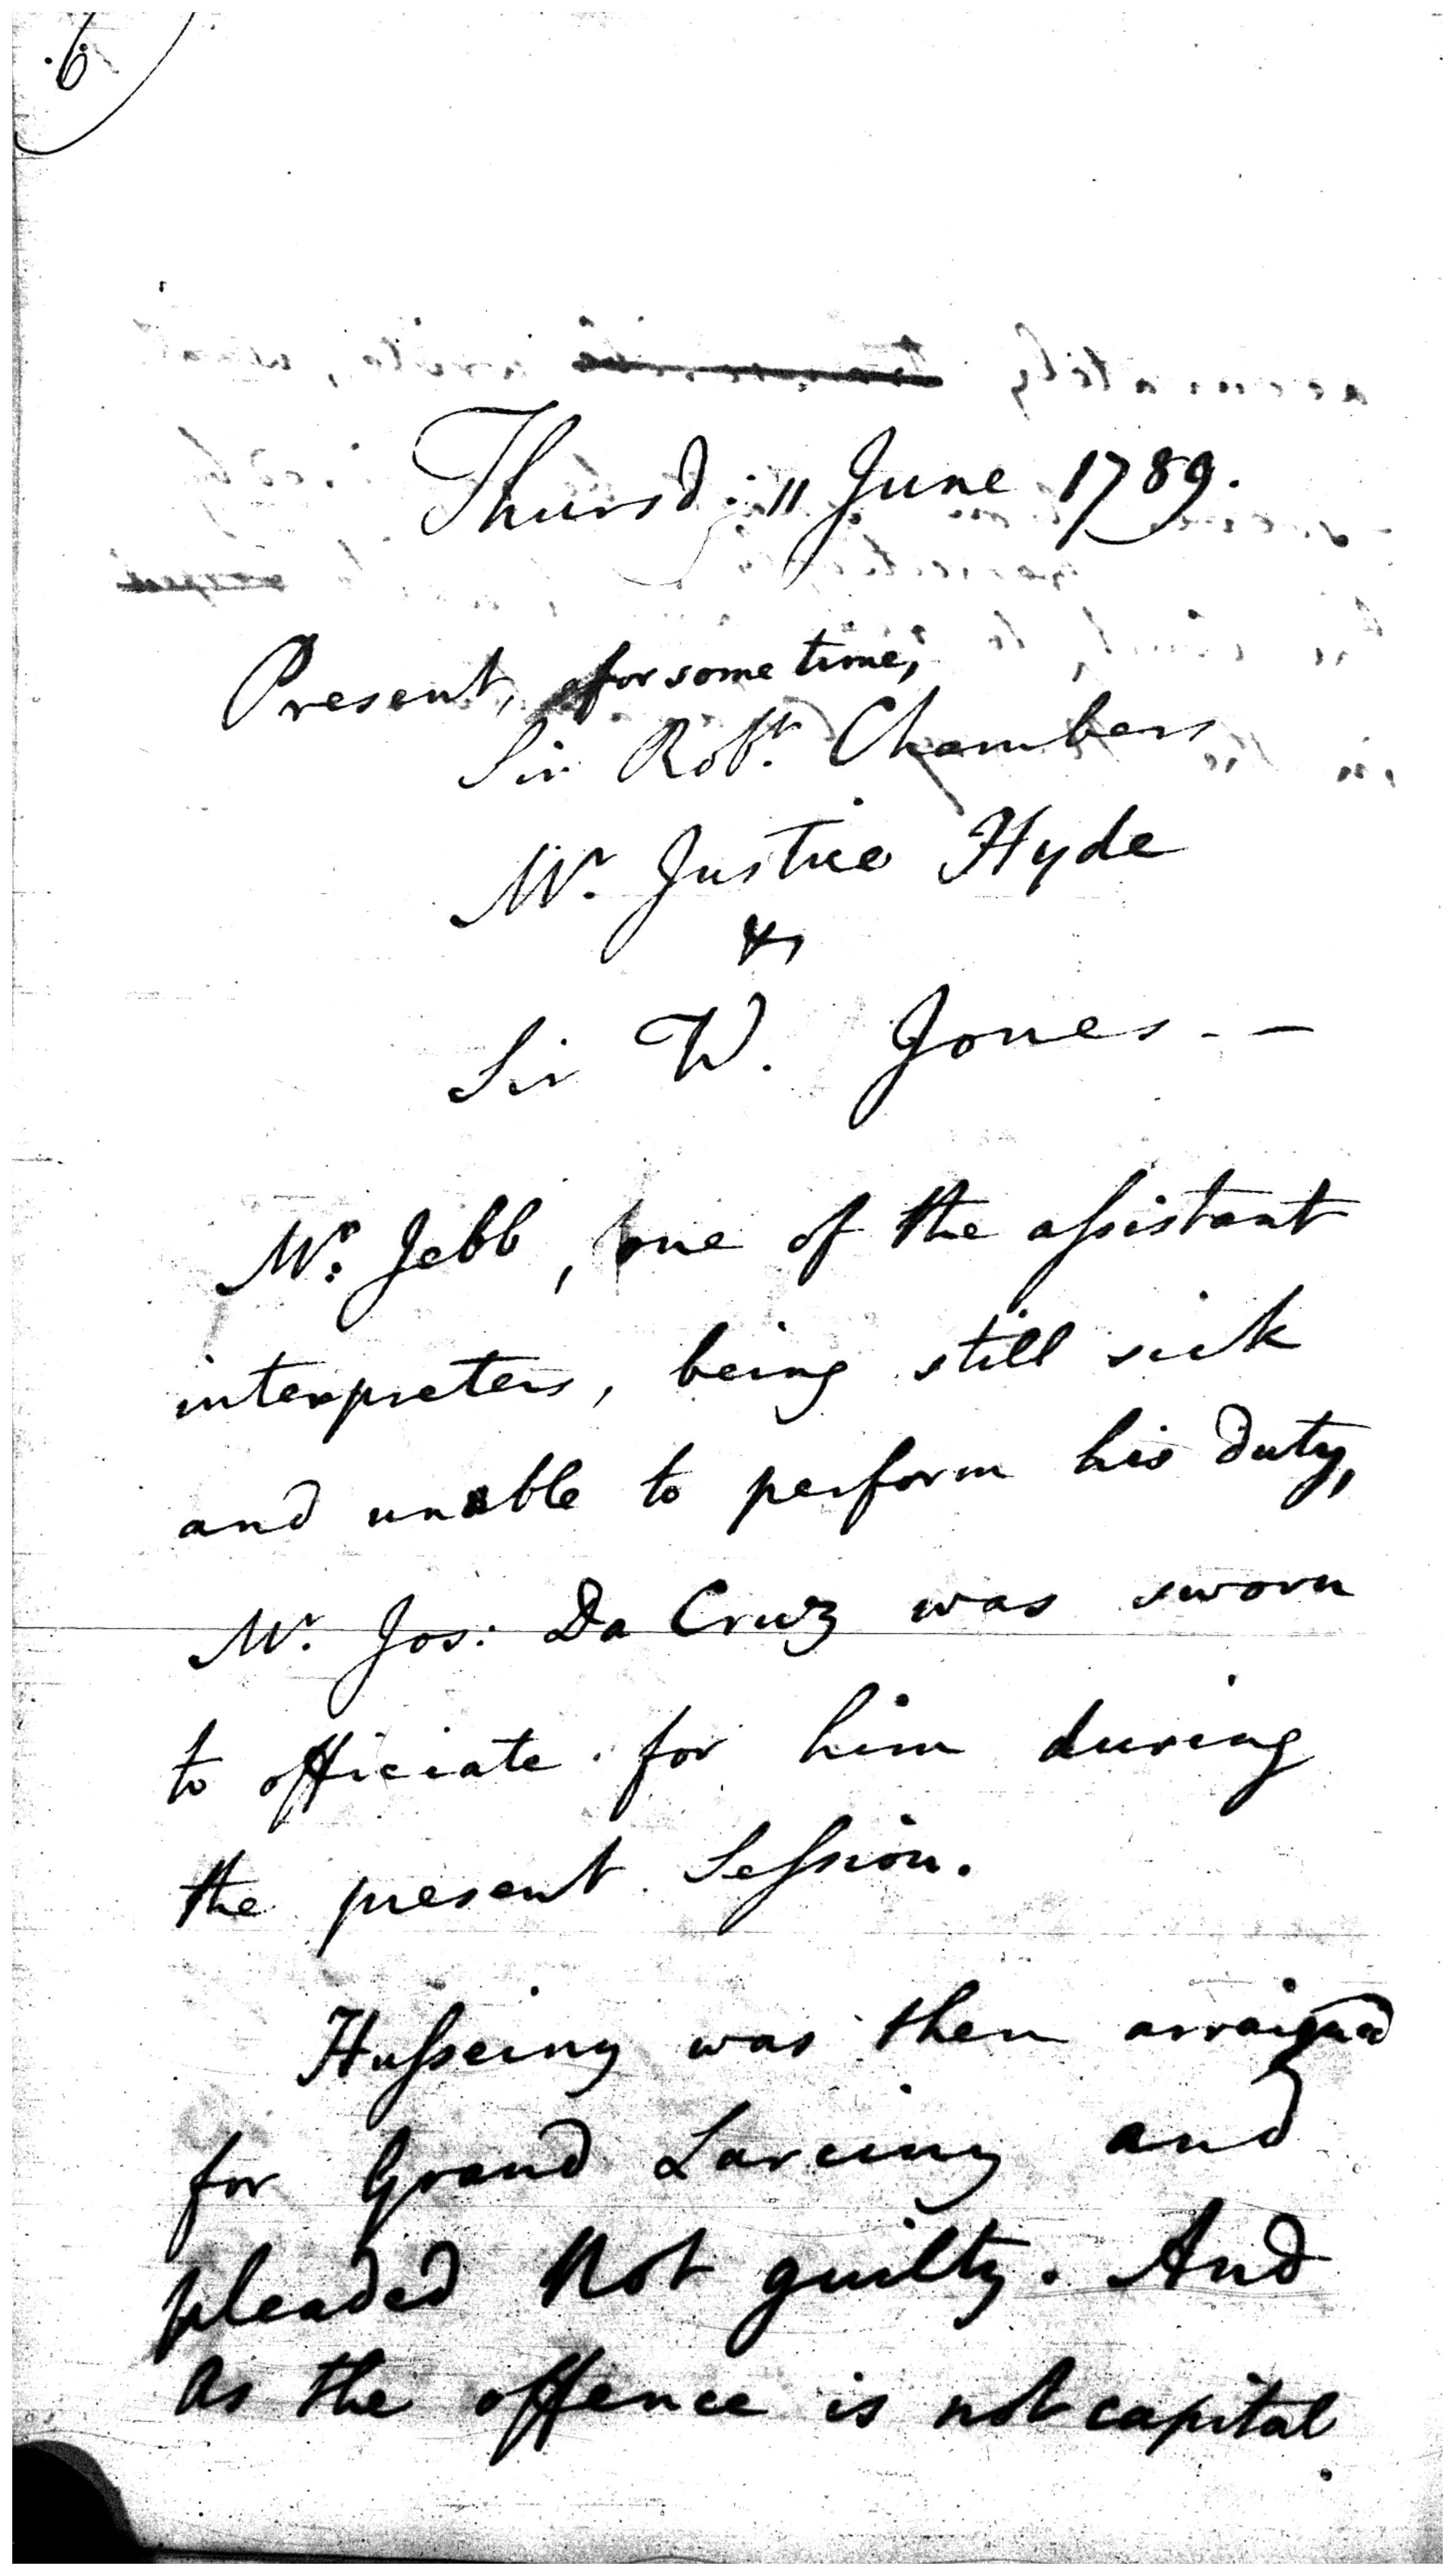 6
Thursd: 11 June 1789.
Present, for some time,
Sir Robt. Chambers
Mr. Justice Hyde
&
Sir W. Jones - -
Mr. Jebb, one of the assistant
interpreters, being still sick
and unable to perform his duty,
Mr. Jos: Da Cruz was sworn
to officiate for him during
the present Session.
Husseiny was then arraigned
for Grand Larciny and
pleaded Not guilty. And
as the offence is not capital